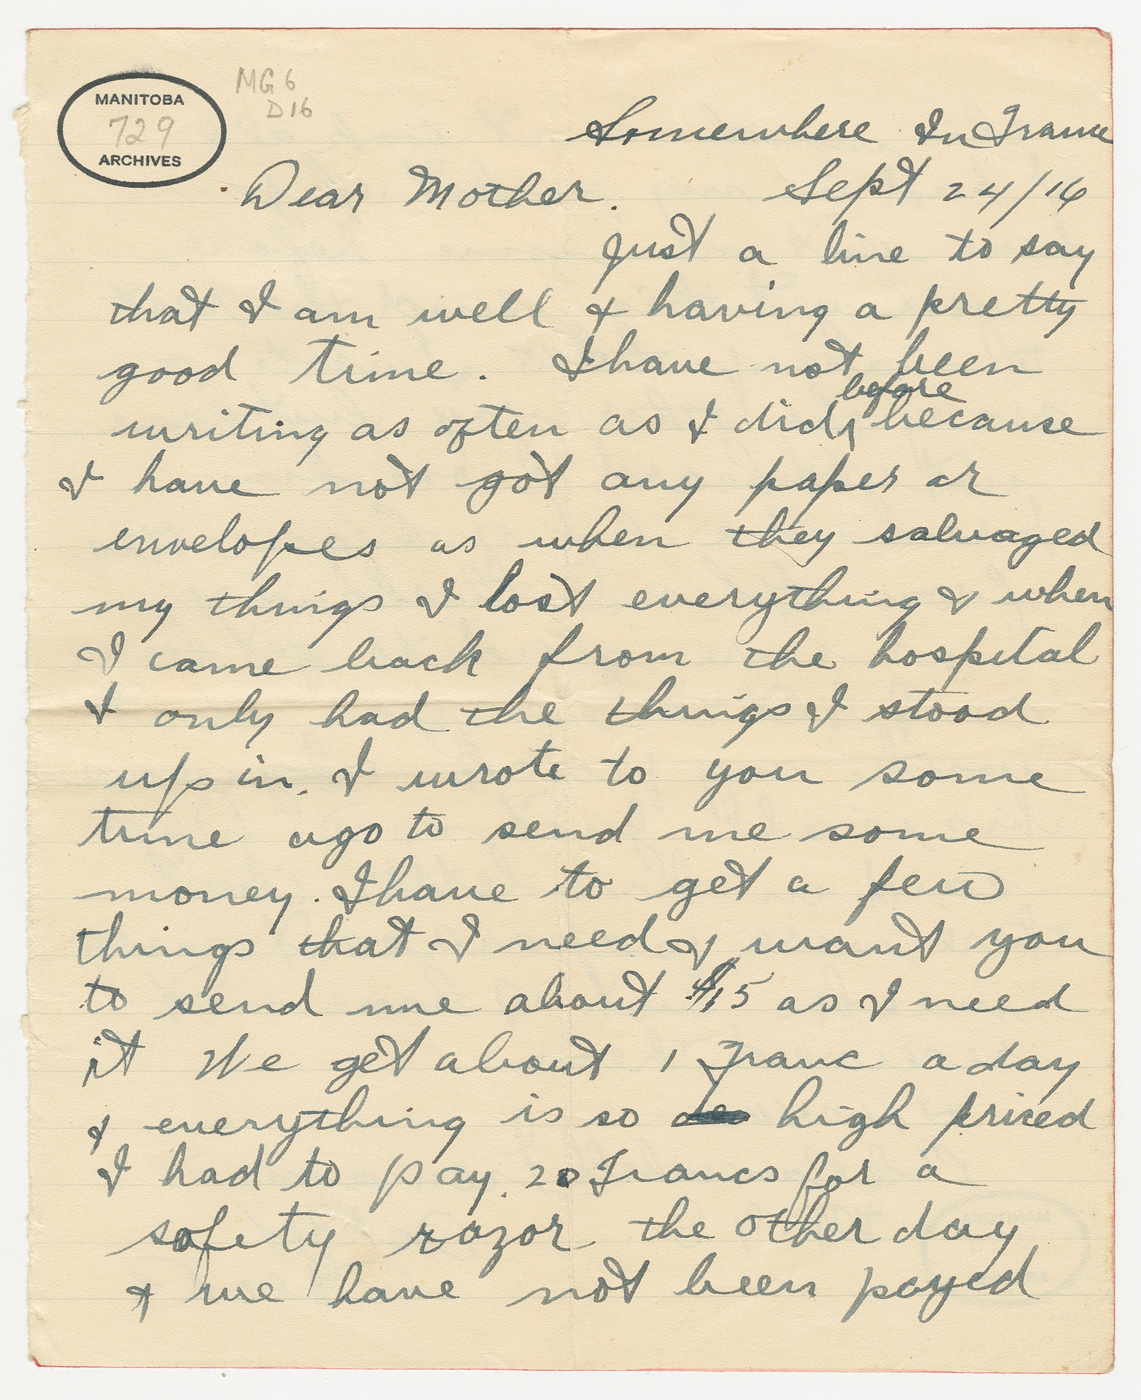 MANITOBA
729
ARCHIVES
MG 6
D16
Somewhere In France
Dear Mother. Sept 24/16
Just a line to say
that I am well & having a pretty
good time. I have not been
before
writing as often as I did because
I have not got any paper or
envelopes as when they salvaged
my things I lost everything & when
I came back from the hospital
I only had the things I stood
up in. I wrote to you some
time ago to send me some
money. I have to get a few
things that I need & want you
to send me about $15 as I need
it We get about 1 Franc a day
& everything is so high priced
I had to pay. 20 Francs for a
safety razor the other day
& we have not been payed